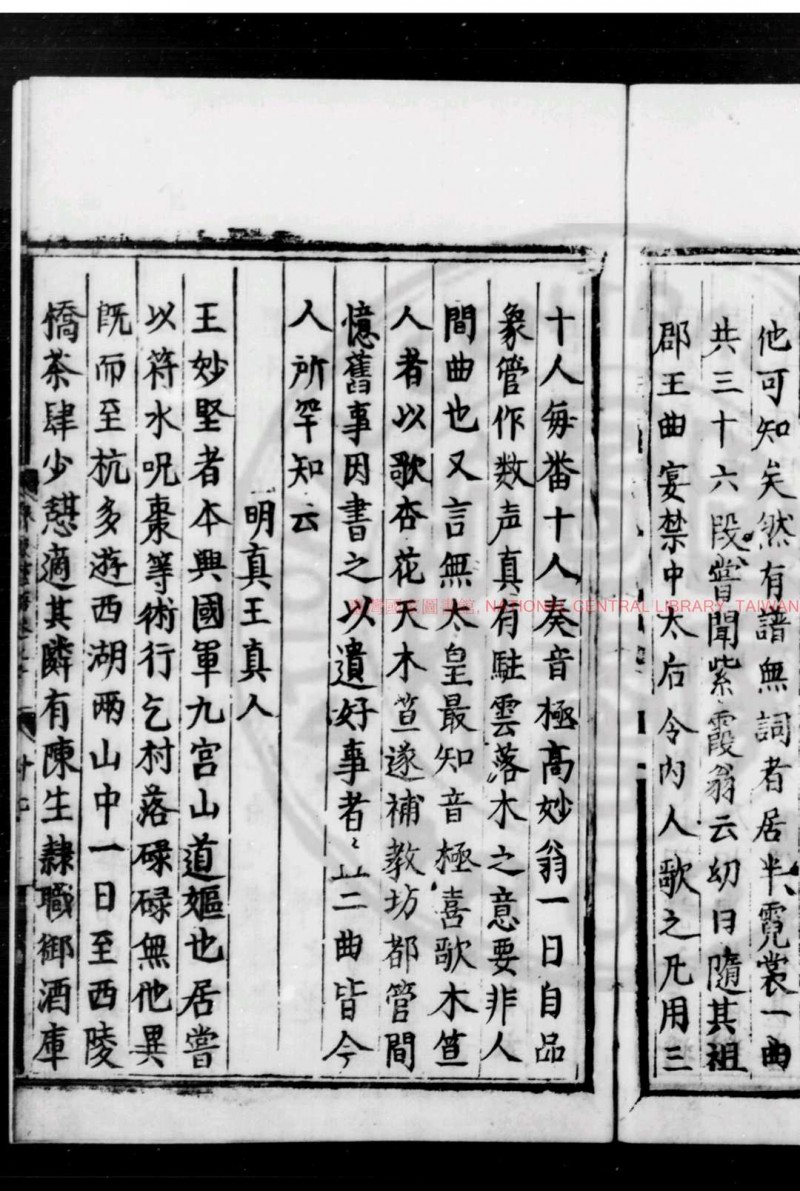 他可知矣然有譜無詞者居半霓裳一曲
共三十六段嘗聞紫霞翁云幼日隨其祖
郡王曲宴禁中太后令内人歌之凡用三
十人每番十人奏音極高妙翁一日自品
象管作数声真有駐雲落木之意要非人
間曲也又言無太皇最知音極喜歌木笪
人者以歌杏花天木笪遂補教坊都管間
憶舊事因書之以遺好事者、此二曲皆今
人所罕知云
明真王真人
王妙堅者本興國軍九宫山道嫗也居嘗
以符水呪棗等術行乞村落碌碌無他異
既而至杭多遊西湖兩山中一日至西陵
橋茶肆少憩適其隣有陳生隷職御酒庫
NATIONAL CENTRAL LIBRARY, TAIWAN